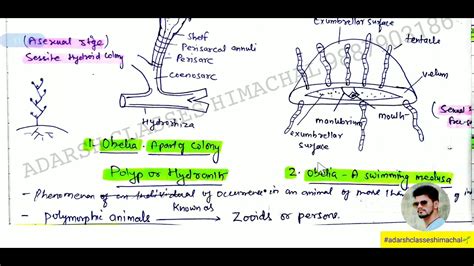 Exumbrellar surface
(Asexual stge)
Sessile Hydroid colony
Shelf
Perisarcal annuli
Perisarc
Coenosarc
Hydrorhiza
tentacle
velum
manubrium
mouth
exumbrellar surface
(Sexual
ADARSH CLASSES HIMACHAL
1. Obelia - Apart of colony
Polyp or Hydranth
2. Obelia - A swimming medusa
- Phenomenon of an individual occurrence in an animal of more than
Known as
- polymorphic animals → Zooids or persons.
#adarshclasseshimachal